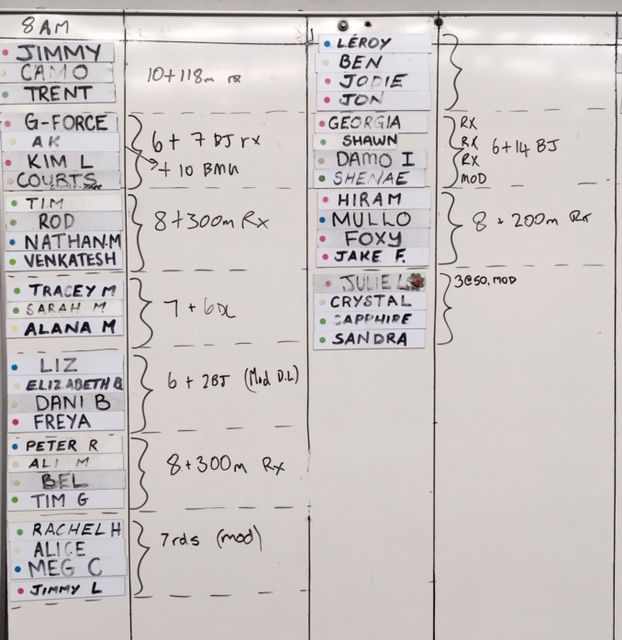 8 AM
JIMMY
CAMO
TRENT
10+118m rx
G-FORCE
AK
KIM L
COURTS
6 + 7 BJ rx
+ 10 BMU
TIM
ROD
NATHAN.M
VENKATESH
8+300m Rx
TRACEY M
SARAH M
ALANA M
7 + 6DL
LIZ
ELIZABETH B
DANI B
FREYA
6 + 2BJ (Mod D.L)
PETER R
ALI M
BEL
TIM G
8+300m Rx
RACHEL H
ALICE
MEG C
JIMMY L
7rds (mod)
LEROY
BEN
JODIE
JON
GEORGIA
SHAWN
DAMO I
SHENAE
RX
RX
RX
MOD
6+14 BJ
HIRAM
MULLO
FOXY
JAKE F.
8 + 200m Rx
JULIE L
CRYSTAL
SAPPHIRE
SANDRA
3@50, MOD